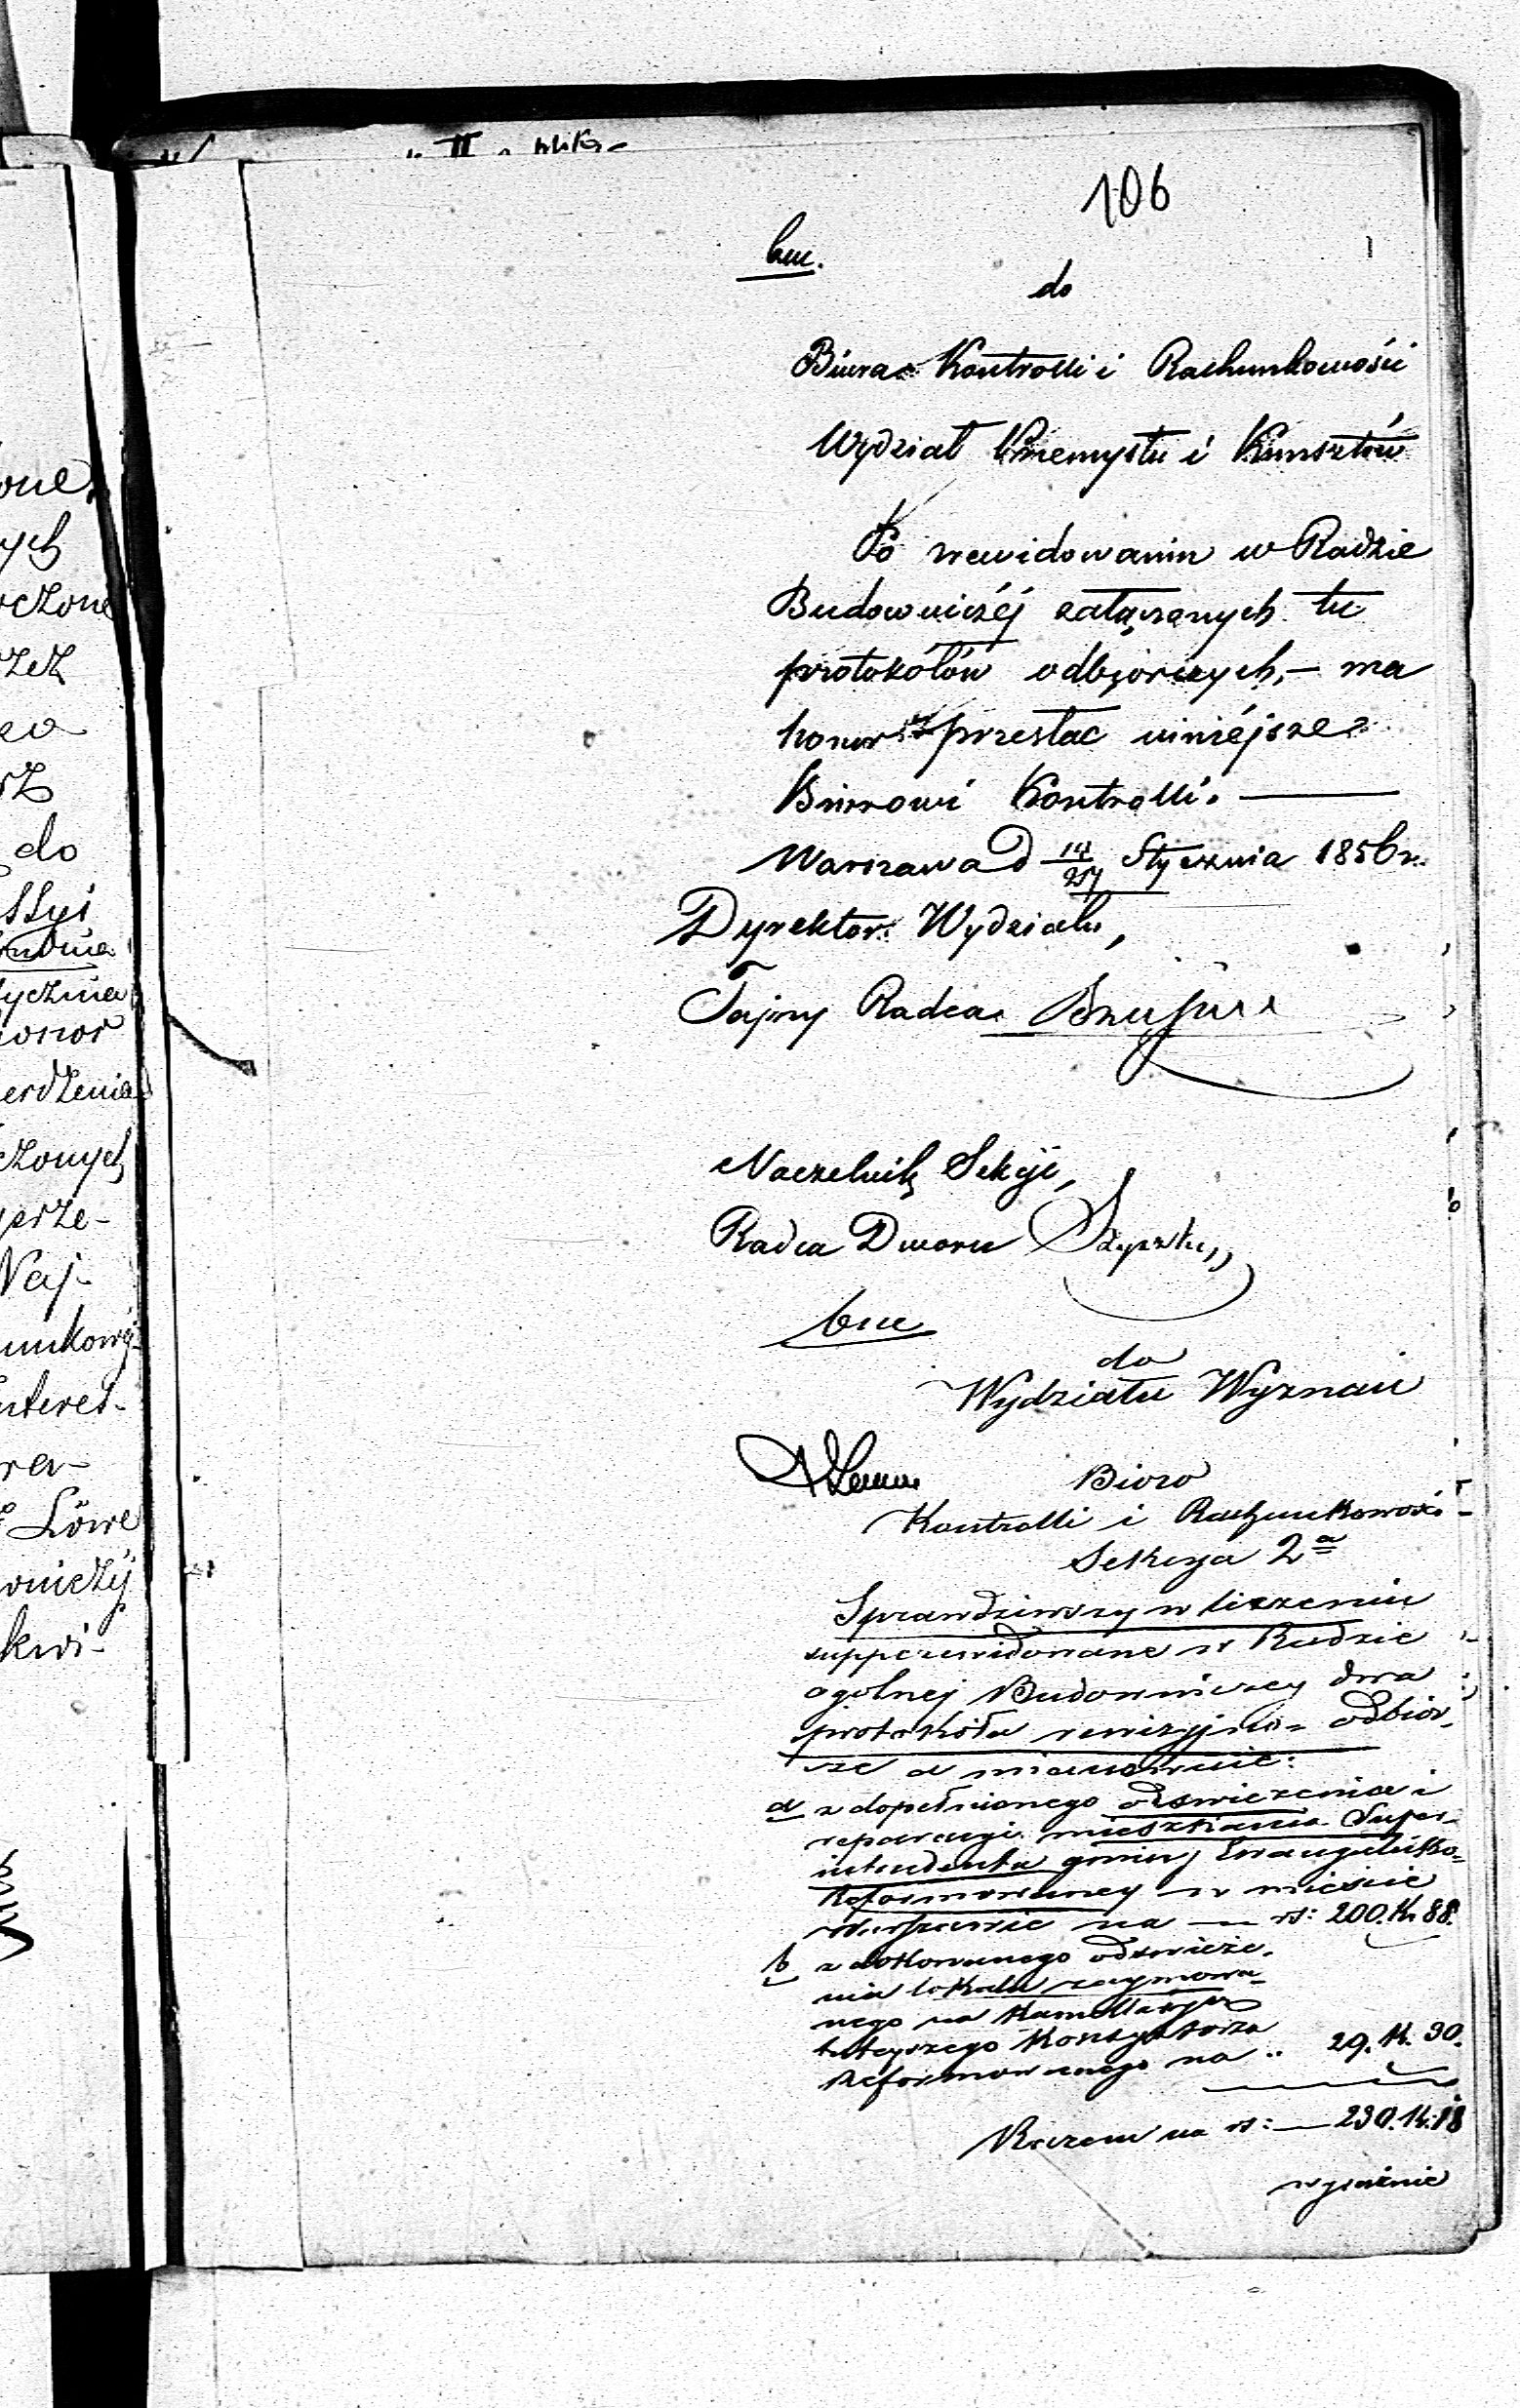 106
bm.
do
Biura Kontrolli i Rachunkowości
Wydział Przemysłu i Kunsztów
Po rewidowaniu w Radzie
Budowniczéj załączonych tu
protokółów odbiorczych, – ma
honor przesłać niniéjsze
Biurowi Kontrolli. —
Warszawa d Stycznia 1856 r.
Dyrektor Wydziału,
Tajny Radca
Naczelnik Sekcji,
Radca Dworu
bm
do
Wydziału Wyznań
Bióro
Kontrolli i Rachunkowości
Sekcya 2a
Sprawdziwszy w liczeniu
superrewidowane w Radzie
ogolnej Budowniczey dwa
protokóła rewizyjno- odbior-
cze a mianowicie:
a z dopełnionego odswieżenia i
reparacyi mieszkania Super-
intendenta gminy Ewangelicko-
Reformowaney w mieście
Warszawie na — rs: 200. k 88.
b z dokonanego odswieże-
nia lokalu zaymowa-
nego na Kancellaryą
tuteyszego Konsystorza
Reformowanego na .. 29. k. 30.
Razem na rs: — 230. k. 18
wyraźnie
one,
ych
czone
rzez
do
yczna
honor
erdzenia
czonych
prze-
Naj-
unkowéj
nteres-
Löwe
owniczy
kwi-